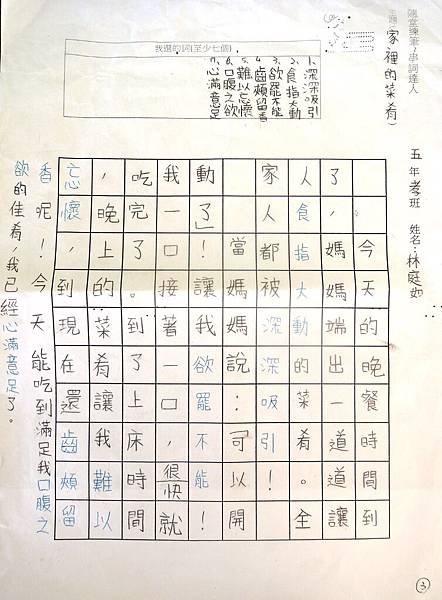 隨堂練筆~串詞達人
主題：(家裡的菜肴)
五年孝班 姓名：林庭如
我選的詞(至少七個)
1.深深吸引
2.食指大動
3.欲罷不能
4.齒頰留香
5.難以忘懷
6.口腹之欲
7.心滿意足
今天的晚餐時間到
了，媽媽端出一道道讓
人食指大動的菜肴。全
家人都被深深吸引！
當媽媽說：可以開
動了」！讓我欲罷不能！
我一口接著一口，很快就
吃完了。到了上床時間
，晚上的菜肴讓我難以
忘懷，到現在還齒頰留
香呢！今天能吃到滿足我口腹之
欲的佳肴，我已經心滿意足了。
3